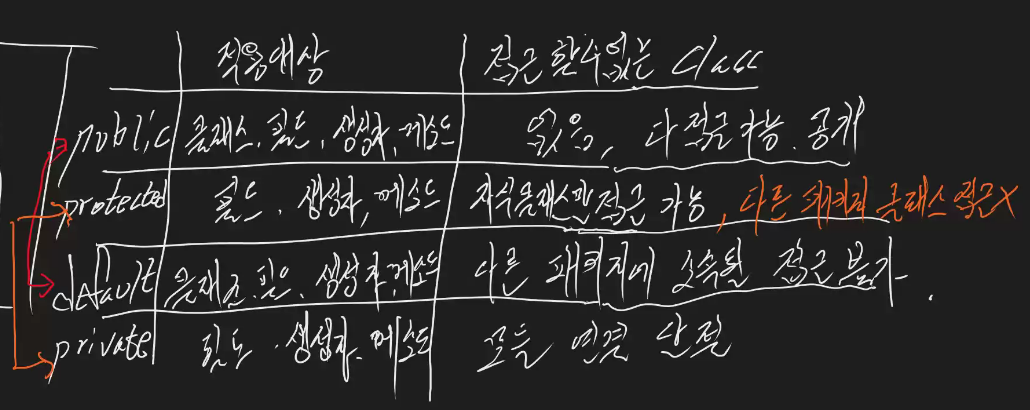 적용대상 접근 할 수 없는 Class
public 클래스, 필드, 생성자, 메소드 없음, 다 접근 가능. 공개
protected 필드, 생성자, 메소드 자식클래스만 접근 가능, 다른 패키지 클래스 접근X
default 클래스, 필드, 생성자, 메소드 다른 패키지에 소속된 접근 불가.
private 필드, 생성자, 메소드 모든 연결 단절